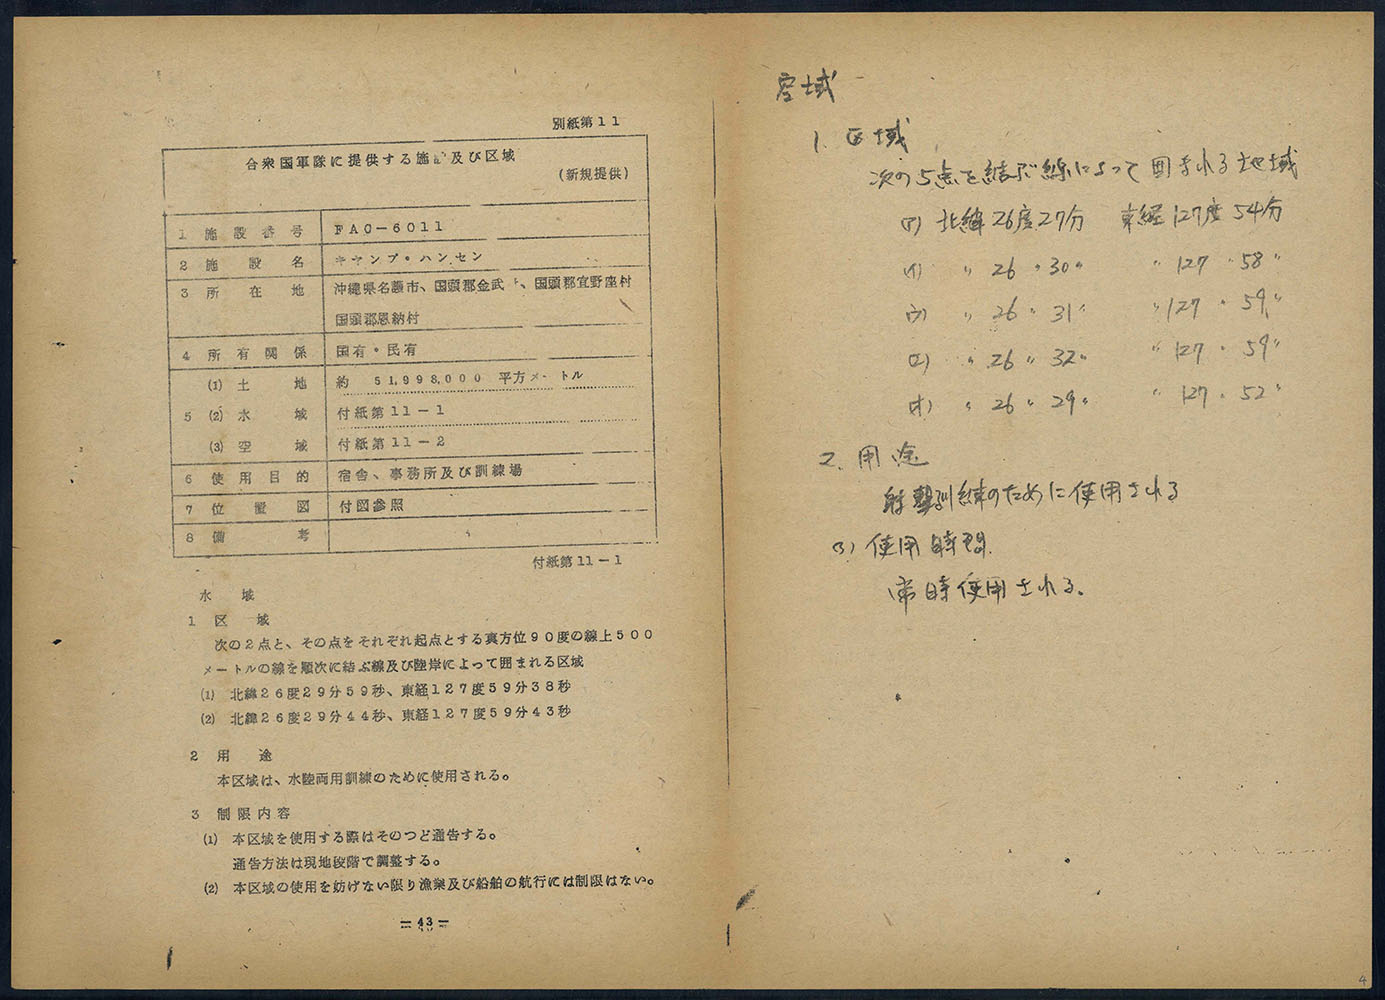 別紙第11
合衆国軍隊に提供する施 及び区域
(新規提供)
1 施設番号 FAC-6011
2 施設名 キャンプ・ハンセン
3 所在地 沖縄県名護市、国頭郡金武 、国頭郡宜野座村
国頭郡恩納村
4 所有関係 国有・民有
(1) 土地 約 51,998,000 平方メートル
5 (2) 水域 付紙第11-1
(3) 空域 付紙第11-2
6 使用目的 宿舎、事務所及び訓練場
7 位置図 付図参照
8 備考
付紙第11-1
水域
1 区域
次の2点と、その点をそれぞれ起点とする真方位90度の線上500
メートルの線を順次に結ぶ線及び陸岸によって囲まれる区域
(1) 北緯26度29分59秒、東経127度59分38秒
(2) 北緯26度29分44秒、東経127度59分43秒
2 用途
本区域は、水陸両用訓練のために使用される。
3 制限内容
(1) 本区域を使用する際はそのつど通告する。
通告方法は現地段階で調整する。
(2) 本区域の使用を妨げない限り漁業及び船舶の航行には制限はない。
-43-
空域
1. 区域
次の5点を結ぶ線によって囲まれる地域
(ア) 北緯26度27分 東経127度54分
(イ) 〃 26 〃 30 〃 〃 127 〃 58 〃
(ウ) 〃 26 〃 31 〃 〃 127 〃 59 〃
(エ) 〃 26 〃 32 〃 〃 127 〃 59 〃
(オ) 〃 26 〃 29 〃 〃 127 〃 52 〃
2. 用途
射撃訓練のために使用される
(3) 使用時間.
常時使用される。
4